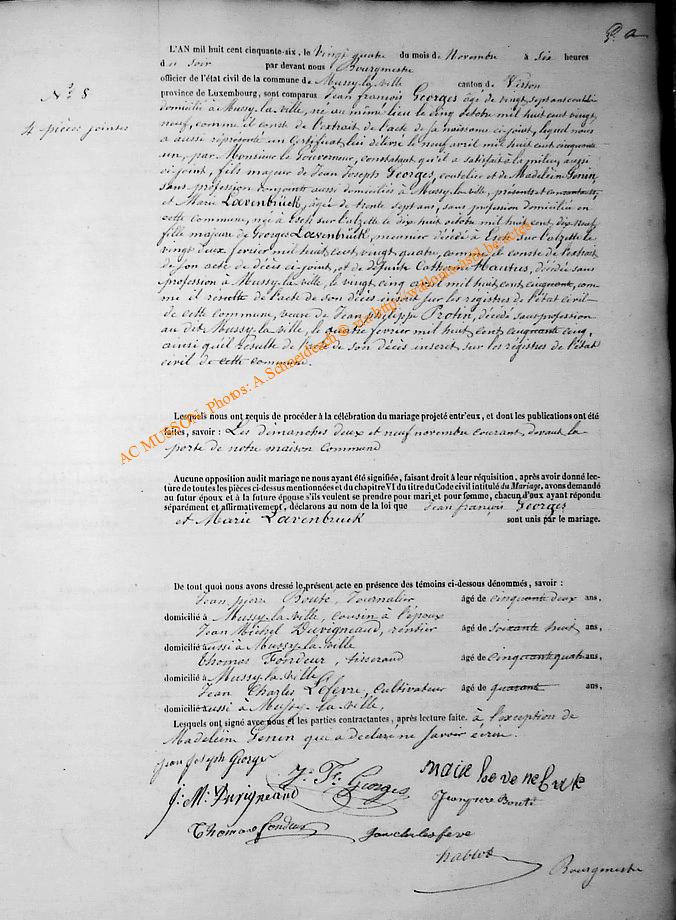 P. a
N.° 8
4 pièces jointes
L'AN mil huit cent cinquante-six, le Vingt quatre du mois de Novembre à Six heures
du soir par devant nous Bourgmestre
officier de l'état civil de la commune de Mussy-la-ville canton de Virton
province de Luxembourg, sont comparus Jean françois Georges âgé de vingt sept ans
domicilié à Mussy-la-ville, né au même lieu le cinq octobre mil huit cent vingt
neuf, comme il conste de l'extrait de l'acte de sa naissance ci-joint, lequel nous
a aussi représenté un Certificat, lui délivré le neuf avril mil huit cent cinquante
un, par Monsieur le Gouverneur, constatant qu'il a satisfait à la milice, aussi
ci-joint, fils majeur de Jean Joseph Georges, coutelier et de Madelein Genin,
sans profession conjoints aussi domiciliés à Mussy-la-ville, présents et consentants,
et Marie Loevenbrück, âgée de trente sept ans, sans profession domiciliée en
cette commune, née à Esch sur l'alzette le dix huit octobre mil huit cent dix neuf,
fille majeure de Georges Loevenbrück, meunier décédé à Esch sur l'alzette le
vingt deux fevrier mil huit cent vingt quatre, comme il conste de l'extrait
de son acte de décès ci-joint, et de défunte Catherine Hautus, décédée sans
profession à Mussy-la-ville, le vingt cinq avril mil huit cent cinquante, com-
me il résulte de l'acte de son décès inscrit sur les registres de l'état civil
de cette commune, veuve de Jean Protin, décédé sans profession
au dit Mussy-la-ville, le quatre fevrier mil huit cent cinquante cinq,
ainsi qu'il résulte de l'acte de son décès inscrit sur les régistres de l'état
civil de cette commune.
Lesquels nous ont requis de procéder à la célébration du mariage projeté entr'eux, et dont les publications ont été
faites, savoir : Les dimanches deux et neuf novembre courant, devant la
porte de notre maison Commune
Aucune opposition audit mariage ne nous ayant été signifiée, faisant droit à leur réquisition, après avoir donné lec-
ture de toutes les pièces ci-dessus mentionnées et du chapitre VI du titre du Code civil intitulé du Mariage, avons demandé
au futur époux et à la future épouse s'ils veulent se prendre pour mari et pour femme, chacun d'eux ayant répondu
séparément et affirmativement, déclarons au nom de la loi que Jean françois Georges
et Marie Loevenbruck sont unis par le mariage.
De tout quoi nous avons dressé le présent acte en présence des témoins ci-dessous dénommés, savoir :
Jean pierre Bouté, Journalier âgé de cinquante deux ans,
domicilié à Mussy-la-ville, cousin à l'époux
Jean Michel Duvigneaud, rentier âgé de soixante huit ans,
domicilié aussi à Mussy-la-ville
Thomas Fondeur, tisserand âgé de cinquante quatre ans,
domicilié à Mussy-la-ville
Jean Charles Lefevre, Cultivateur âgé de quarante ans,
domicilié aussi à Mussy-la-ville,
Lesquels ont signé avec nous et les parties contractantes, après lecture faite. à l'exception de
Madelein Genin qui a déclaré ne savoir écrire.
jean Joseph George
J. Fr. Georges
Marie Lo ve ne bruk
J. M. Duvigneaud
Jean piere Bouté
Thomas Fondeur
Jan charles feve
Bourgmestre